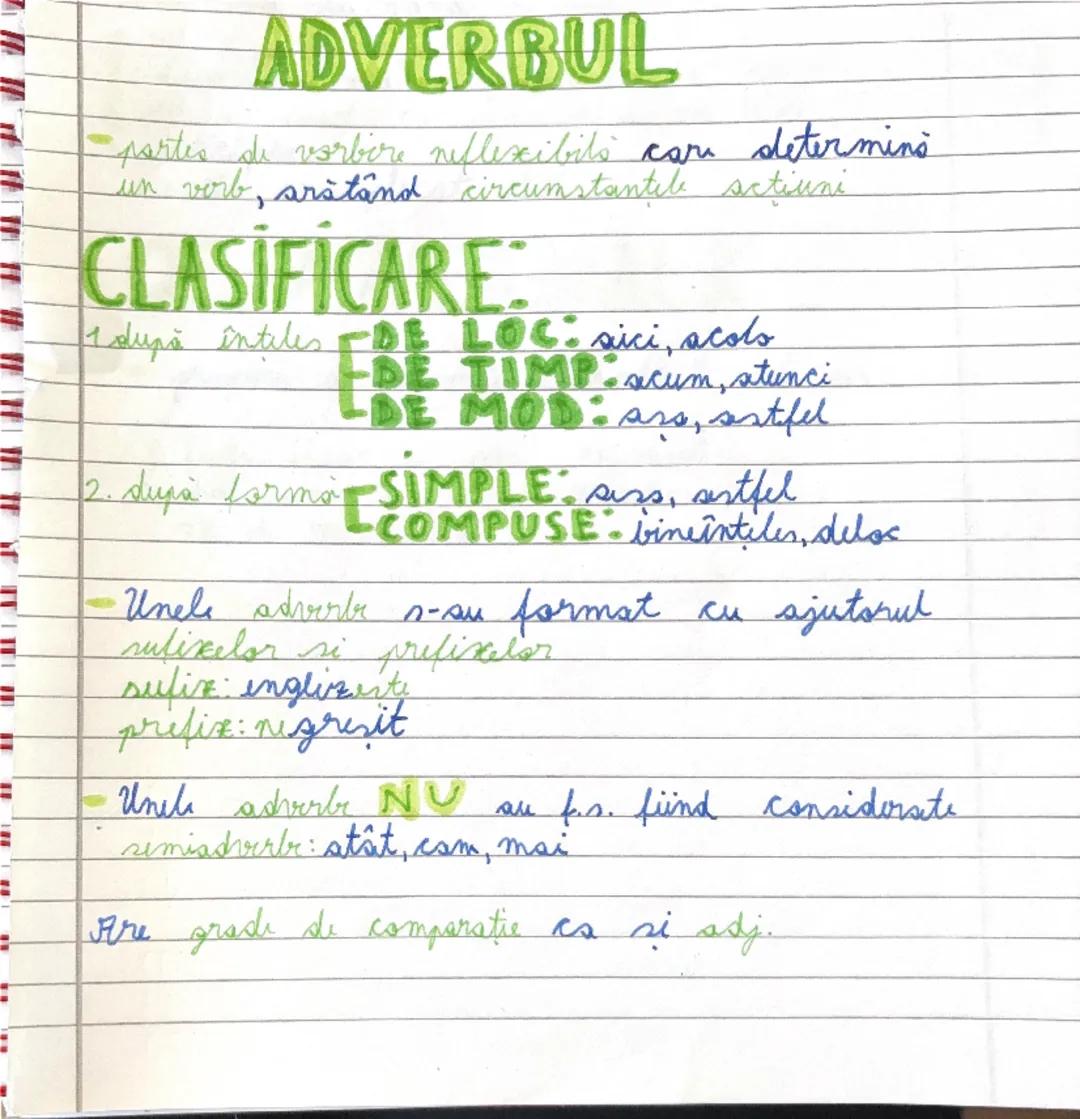 ADVERBUL
- partea de vorbire neflexibilă care determină
un verb, arătând circumstanțele acțiuni
CLASIFICARE:
1. după înțeles DE LOC: aici, acolo
DE TIMP: acum, atunci
DE MOD: așa, astfel
2. după formă SIMPLE: așa, astfel
COMPUSE: bineînțeles, deloc
- Unele adverbe s-au format cu ajutorul
sufixelor si prefixelor
sufix: englezește
prefix: negreșit
- Unele adverbe NU au f.s. fiind considerate
semiadverbe: atât, cam, mai
Are grade de comparație ca și adj.